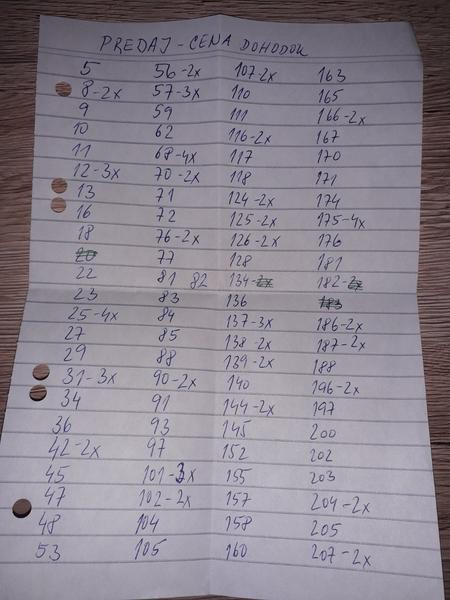 PREDAJ - CENA DOHODOU
5 56-2x 107-2x 163
8-2x 57-3x 110 165
9 59 111 166-2x
10 62 116-2x 167
11 68-4x 117 170
12-3x 70-2x 118 171
13 71 124-2x 174
16 72 125-2x 175-4x
18 76-2x 126-2x 176
20 77 128 181
22 81 82 134-2x 182-2x
23 83 136 183
25-4x 84 137-3x 186-2x
27 85 138-2x 187-2x
29 88 139-2x 188
31-3x 90-2x 140 196-2x
34 91 144-2x 197
36 93 145 200
42-2x 97 152 202
45 101-3x 155 203
47 102-2x 157 204-2x
48 104 158 205
53 105 160 207-2x